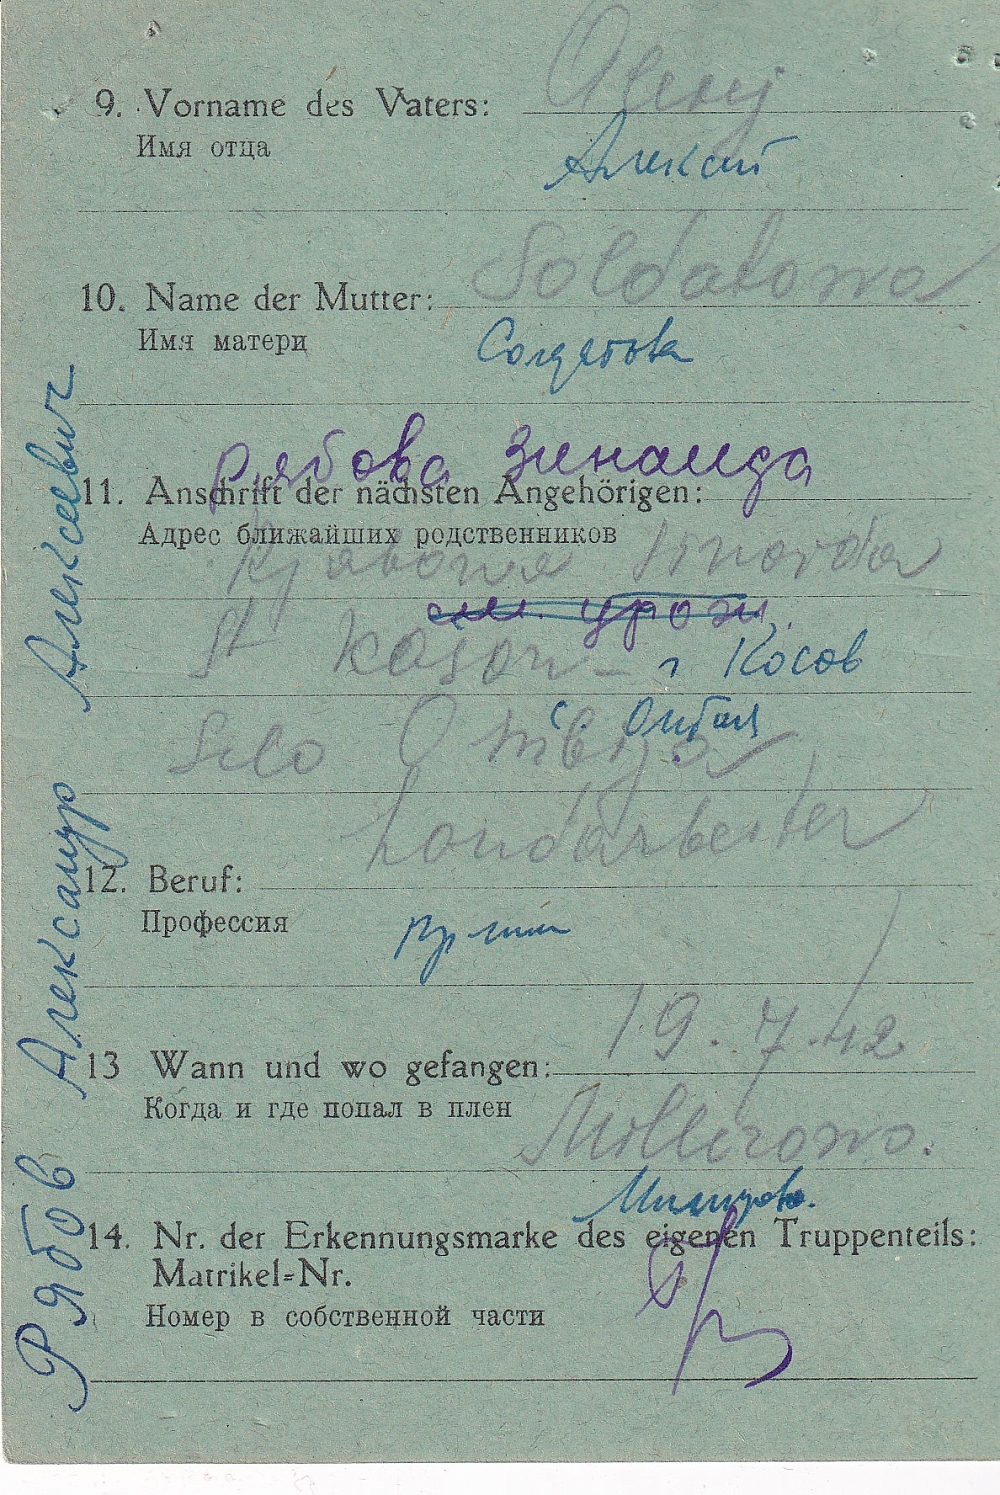 9. Vorname des Vaters: Olexij
Имя отца Алексей
10. Name der Mutter: Soldatowa
Имя матери Солдатова
Рябова Зинаида
11. Anschrift der nächsten Angehörigen:
Адрес ближайших родственников
Rjabowa Sinaida
St Kosow - г Косов
Selo
с.
Landarbeiter
12. Beruf:
Профессия
19.7.42
13 Wann und wo gefangen:
Когда и где попал в плен
Millerowo.
14. Nr. der Erkennungsmarke des eigenen Truppenteils:
Matrikel-Nr.
Номер в собственной части
Рябов Александр Алексеевич